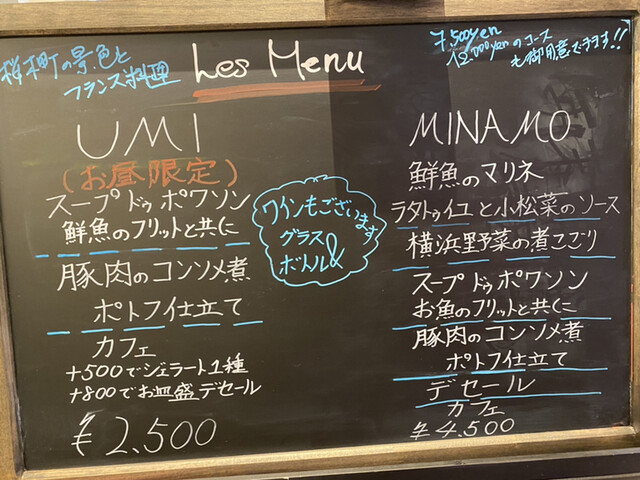 桜木町の景色と
フランス料理
Les Menu
7,500yen
12,000yenのコース
も御用意できます!!
UMI
(お昼限定)
スープドゥポワソン
鮮魚のフリットと共に
豚肉のコンソメ煮
ポトフ仕立て
カフェ
+500でジェラート1種
+800でお皿盛デセール
¥2,500
ワインもございます
グラス
&
ボトル
MINAMO
鮮魚のマリネ
ラタトゥイユと小松菜のソース
横浜野菜の煮こごり
スープドゥポワソン
お魚のフリットと共に
豚肉のコンソメ煮
ポトフ仕立て
デセール
カフェ
¥4,500